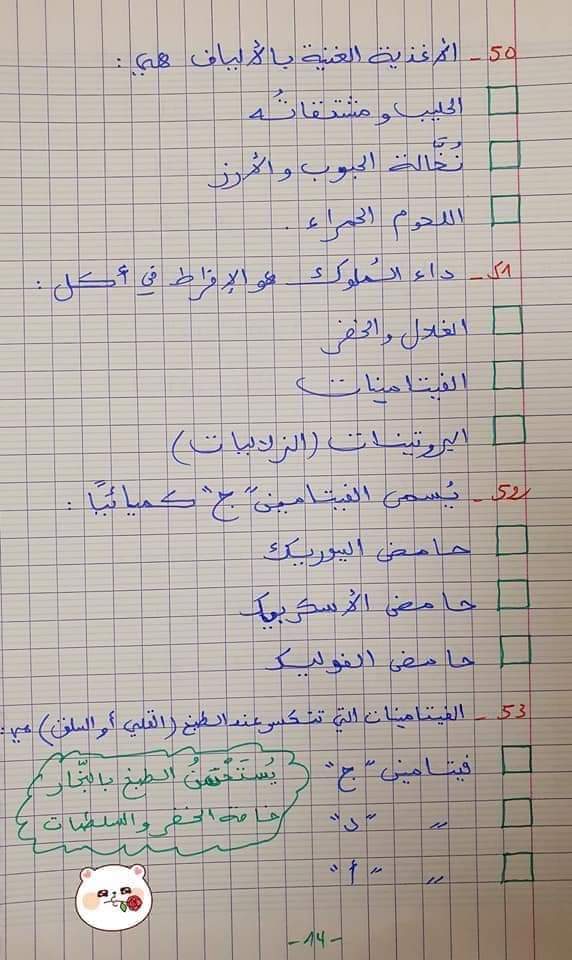 50- الأغذية الغنية بالألياف هي:
الحليب ومشتقاتُه
نُخّالة الحبوب والأرز
اللحوم الحمراء.
51- داء المُلوك هو الإفراط في أكل:
الغلال والخضر
الفيتامينات
البروتينات (الزلاليات)
52- يُسمى الفيتامين "ج" كميائيًا:
حامض اليوريك
حامض الأسكربيك
حامض الفوليك
53- الفيتامينات التي تتكسر عند الطبخ (القلي أو السلق) هي:
فيتامين "ج"
" "د"
" "أ"
يُسْتَحْسَنُ الطبخ بالبُخار
خاصة الخضر والسلطات
-14-